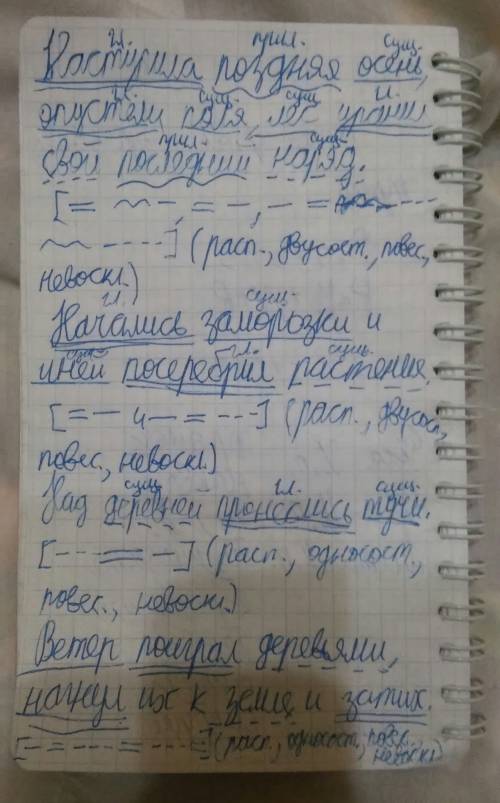 гл. прил. сущ.
Наступила поздняя осень,
гл. сущ. сущ. гл.
опустели поля, лес уронил
прил. сущ.
свой последний наряд.
[= ~ - , = - , - = - - -
~ - - - -] (расп., двусост., повес.,
невоскл.)
гл. сущ.
Начались заморозки и
сущ. гл. сущ.
иней посеребрил растения.
[= — и — = - - -] (расп., двусост.,
повес., невоскл.)
сущ. гл. сущ.
Над деревней пронеслись тучи.
[- - - = —] (расп., односост.,
повес., невоскл.)
Ветер поиграл деревьями,
нагнул их к земле и затих.
(расп., односост., повес.,
невоскл.)